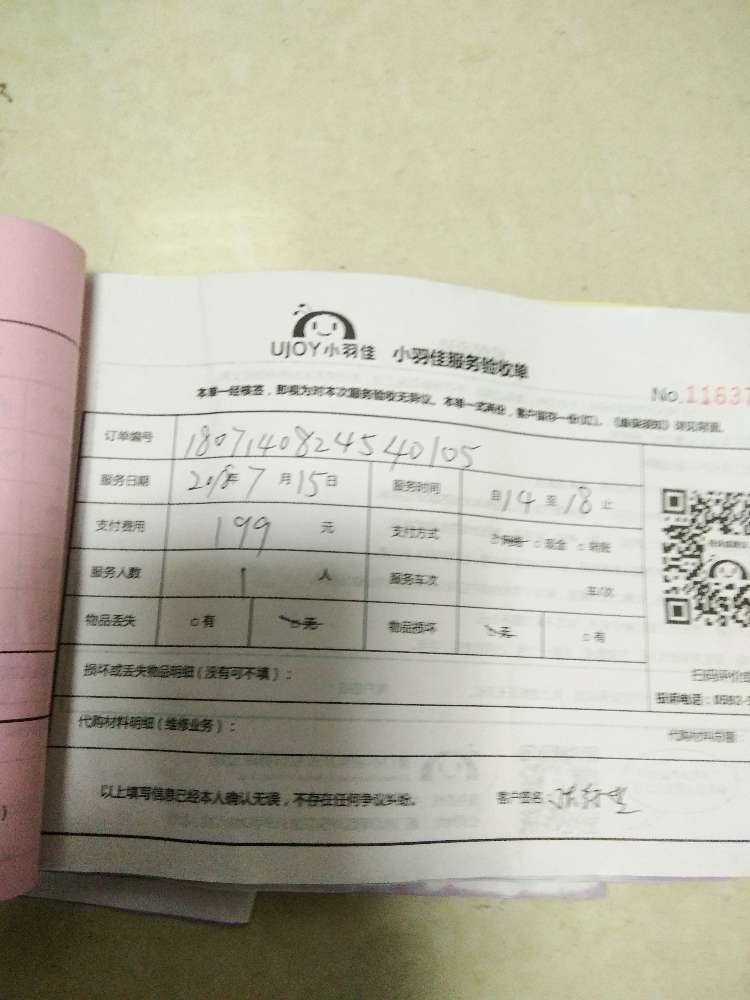 UJOY小羽佳 小羽佳服务验收单
No.11637
本单一经核签，即视为对本次服务验收无异议。本单一式两份，客户留存一份(红)。《服务须知》详见背面。
订单编号 180714082454 40105
服务日期 2018年7月15日 服务时间 自14至18止
支付费用 199元 支付方式 网络 现金 转账
服务人数 1人 服务车次 车/次
物品丢失 有 无 物品损坏 无 有
扫码评价
损坏或丢失物品明细（没有可不填）：
投诉电话：0592-
代购材料明细（维修业务）：
代购材料总量
以上填写信息已经本人确认无误，不存在任何争议纠纷。 客户签名：